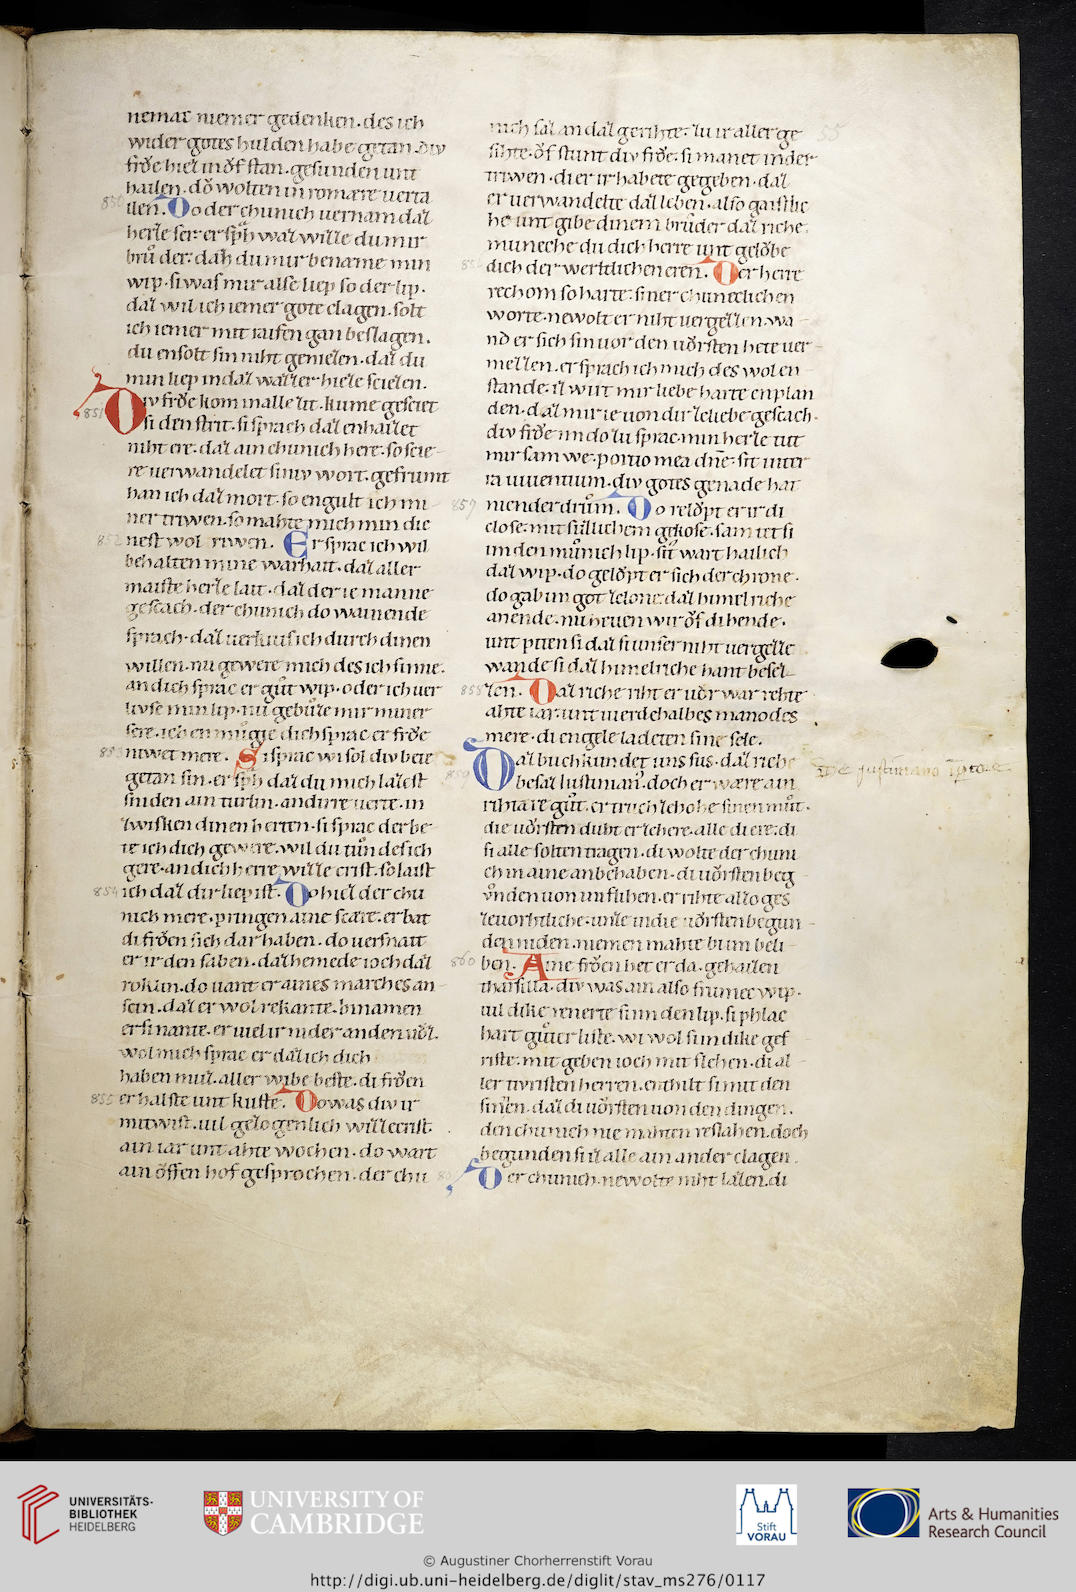 niemer gedenken. des ich
wider gotes hulden habe getan. div
hiez in of stan. gesunden unt
hailen. do wolten in romære uerta
ilen. Do der chunich uernam daz
herze ser. er sph waz wille du mir
brůder. daz du mir bename min
wip. si was mir alse liep so der lip.
daz wil ich iemer gote clagen. solt
ich iemer mit gan beslagen.
du ensolt sin niht geniezen. daz du
min liep in daz wazzer hieze sciezen.
Div kom in alle zit. kume gesciet
si den strit. si sprach daz enhaizet
niht ere. daz ain chunich here. so scie
re uerwandelet siniv wort. gefrumt
han ich daz mort. so engult ich mi
ner triwen. so mahte mich min die
nest wol riwen. Er sprac ich wil
behalten mine warhait. daz aller
maiste herze lait. daz der ie manne
gescach. der chunich do wainende
sprach. daz uerkiusich durch dinen
willen. nu gewere mich des ich sinne.
an dich sprac er gůt wip. oder ich uer
livse min lip. nu gebůze mir miner
sere. ichen můgie dich sprac er
niwet mere. Si sprac wi sol div bete
getan sin. er sph daz du mich lazest
sinden ain turlin. andire uerte. in
zwisken dinen herten. si sprac der be
te ich dich gewere. wil du tůn des ich
gere. an dich herre wizze crist. so laist
ich daz dir liep ist. Do hiez der chu
nich mere. pringen aine scære. er bat
di sich dar haben. do uersnait
er ir den saben. daz hemede ioch daz
rokin. do uant er aines marches an
scin. daz er wol rekante. binamen
er si nante. er uiel ir nider an den uůz.
wol mich sprac er daz ich dich
haben muz. aller wibe beste. di
er halste unt kuste. Do was div ir
mitwist. uil gezogenlich wizzecrist.
ain iar unt ahte wochen. do wart
ain offen hof gesprochen. der chu
nich saz an daz gerihte. zu ir aller ge
sihte. of stunt div si manet in der
triwen. di er ir habete gegeben. daz
er uerwandelte daz leben. also gaistlic
he unt gibe dinem brůder daz riche.
muneche du dich herre unt gelobe
dich der werltlichen eren. Der herre
rechom so harte. siner chunichlichen
worte. newolt er niht uergezzen. wa
nd er sich sin uor den uorsten hete uer
mezzen. er sprach ich mich des wol en
stande. iz wirt mir liebe harte enplan
den. daz mir ie uon dir ze liebe gescach.
div do zu sprac. min herze tut
mir sam we. portio mea dne. sit in ter
ra uiuentium. div gotes genade hat
mich der Do er ir di
close. mit sůzlichem gekose. sam iet si
im den můnich lip. sit wart hailich
daz wip. do gelopt er sich der chrone.
do gab im got ze lone. daz himelriche
anende. nu heuen wir of di hende.
unt piten si daz si unser niht uergezze
wande si daz himelriche hant besez
zen. Daz riche riht er uor war rehte
ahte iar. unt uierdehalbes manodes
mere. di engele ladeten sine sele.
Daz buch kundet uns sus. daz riche
besaz Iustinian. doch er wære ain
rihtære gůt. er truch ze hohe sinen můt.
die uorsten duht er ze here. alle di ere. di
si alle solten tragen. di wolte der chuni
ch in aine anbehaben. di uorsten beg
unden uon im flihen. er rihte allo ges
zeuorhtliche. unze in die uorsten begun
den niden. niemen mahte bi im beli
ben. Aine het er da. gehaizen
tharsilla. div was ain also frumec wip.
uil dike renerte si im den lip. si phlac
hart gůter liste. wi wol si in dike gef
riste. mit geben ioch mit flehen. di al
ler tivristen herren. enthilt si mit den
sinen. daz di uorsten uon den dingen.
den chunich nie mahten reslahen. doch
begunden si iz alle ain ander clagen.
Der chunich. newolte niht lazen. di
55
850
851
852
853
854
855
857
858
859
860
De justiniano
UNIVERSITÄTS-
BIBLIOTHEK
HEIDELBERG
UNIVERSITY OF
CAMBRIDGE
Stift
VORAU
Arts & Humanities
Research Council
© Augustiner Chorherrenstift Vorau
http://digi.ub.uni-heidelberg.de/diglit/stav_ms276/0117